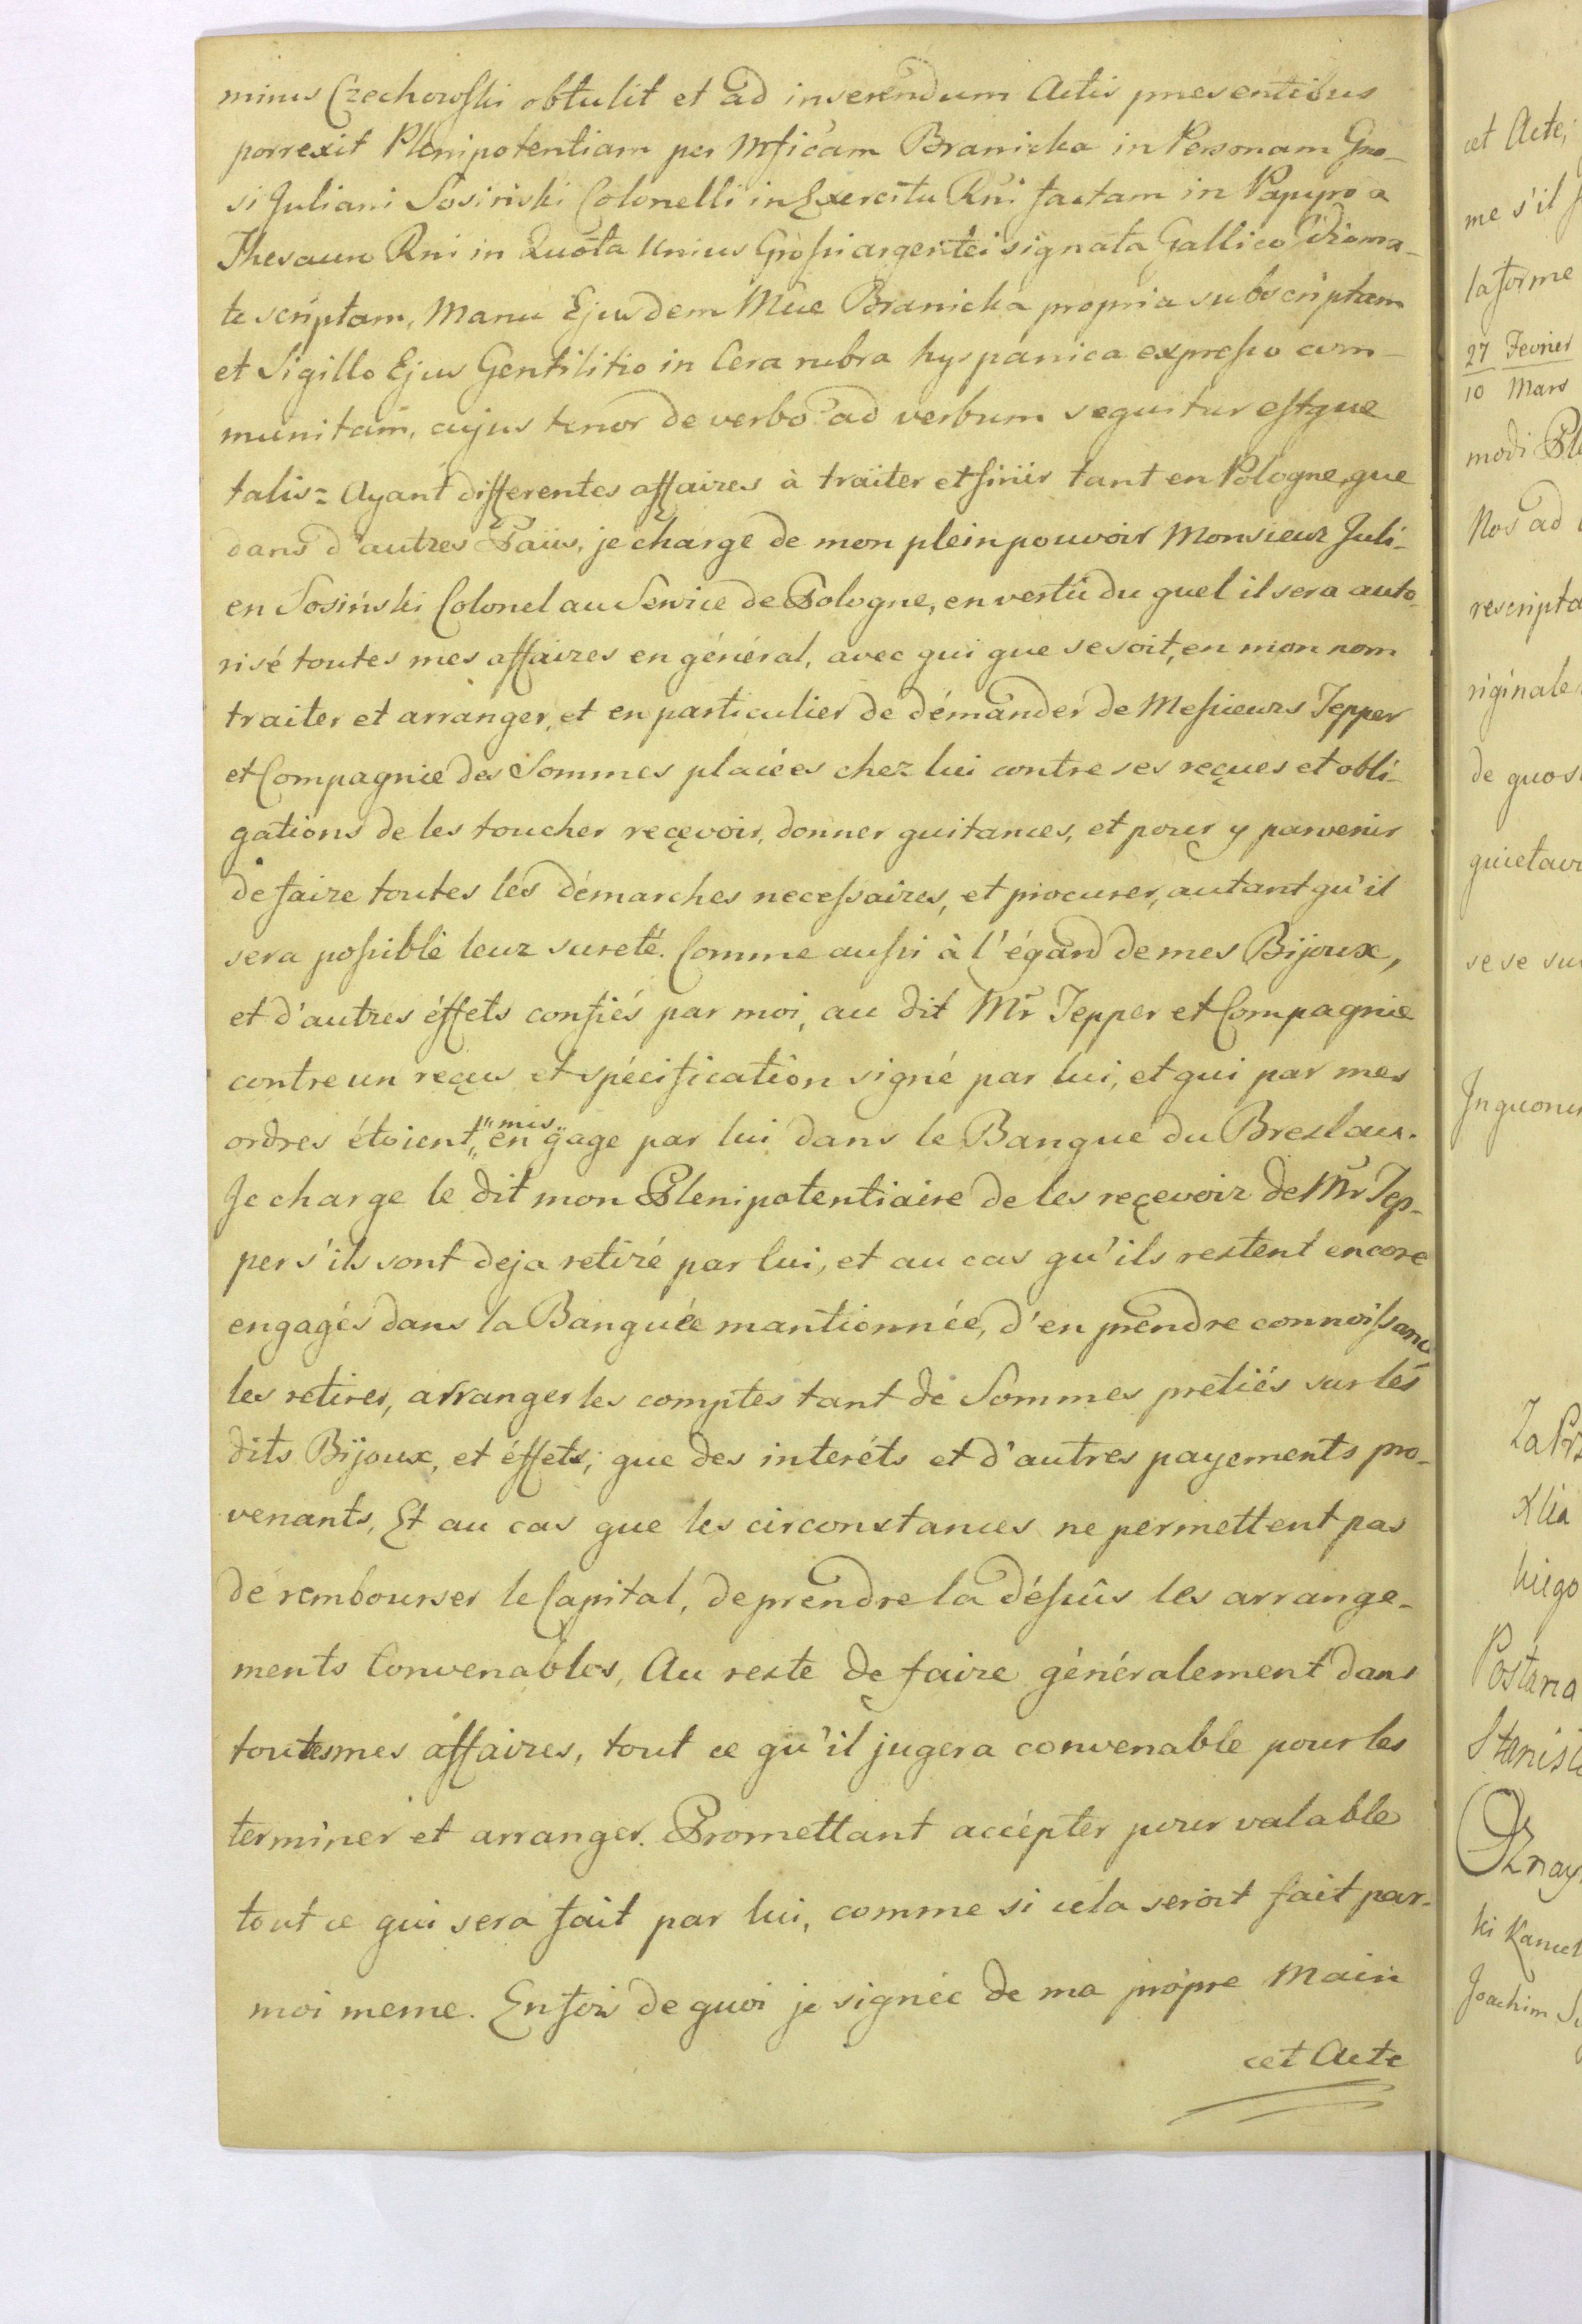 minus Czechowski obtulit et ad inserendum Actis presentibus
porrexit Plenipotentiam per Mficam Branicka in Personam Gno-
si Juliani Sosiński Colonelli in Exercitu Rni factam in Papyro a
Thesauro Rni in Quota Unius Grossi argentei signata Gallico Idioma-
te scriptam, Manu Ejusdem Mcae Branicka propria subscriptam
et Sigillo Ejus Gentilitio in Cera rubra hyspanica expresso com-
munitam, cujus tenor de verbo ad verbum sequitur estque
talis = Ayant differentes affaires à traiter et finir tant en Pologne, que
dans d'autres Païis, je charge de mon plein pouvoir Monsieur Juli-
en Sosiński Colonel au Service de Pologne, en vertû du quel il sera auto-
risé toutes mes affaires en général, avec qui que se soit, en mon nom
traiter et arranger, et en particulier de démander de Messieurs Tepper
et Compagnie des Sommes placées chez lui contre ses reçues et obli-
gations de les toucher reçevoir, donner quitances, et pour y parvenir
de faire toutes les démarches necessaires, et procurer, autant qu'il
sera possible leur sureté. Comme aussi à l'égard de mes Bijoux,
et d'autres éffets confiés par moi, au dit Mr Tepper et Compagnie
contre un reçus et spécification signé par lui, et qui par mes
ordres étoient "mis" en gage par lui dans le Banque du Breslau.
Je charge le dit mon Plenipotentiaire de les reçevoir de Mr Tep-
per s'ils sont deja retiré par lui, et au cas qu'ils restent encore
engagés dans la Banquée mantionnée, d'en prendre connoissanc
les retirer, arranger les comptes tant de Sommes pretiés sur lés
dits Bijoux, et éffets; que des interéts et d'autres payements pro-
venants, Et au cas que les circonstances ne permettent pas
de rembourser le Capital, de prendre la déssûs les arrange-
ments Convenables, Au reste de faire généralement dans
toutes mes affaires, tout ce qu'il jugera convenable pour les
terminer et arranger. Promettant accépter pour valable
tout ce qui sera fait par lui, comme si cela seroit fait par-
moi meme. En fois de quoi je signée de ma propre Main
cet Acte
cet Acte,
me s'il
la forme
27 Fevrier
10 Mars
modi
Nos ad
rescripta
riginale
de quos
quietav
se se
In quor
Za
xlia
kiego
Postana
Stanisl
Oznay
ki Kancel
Joachim